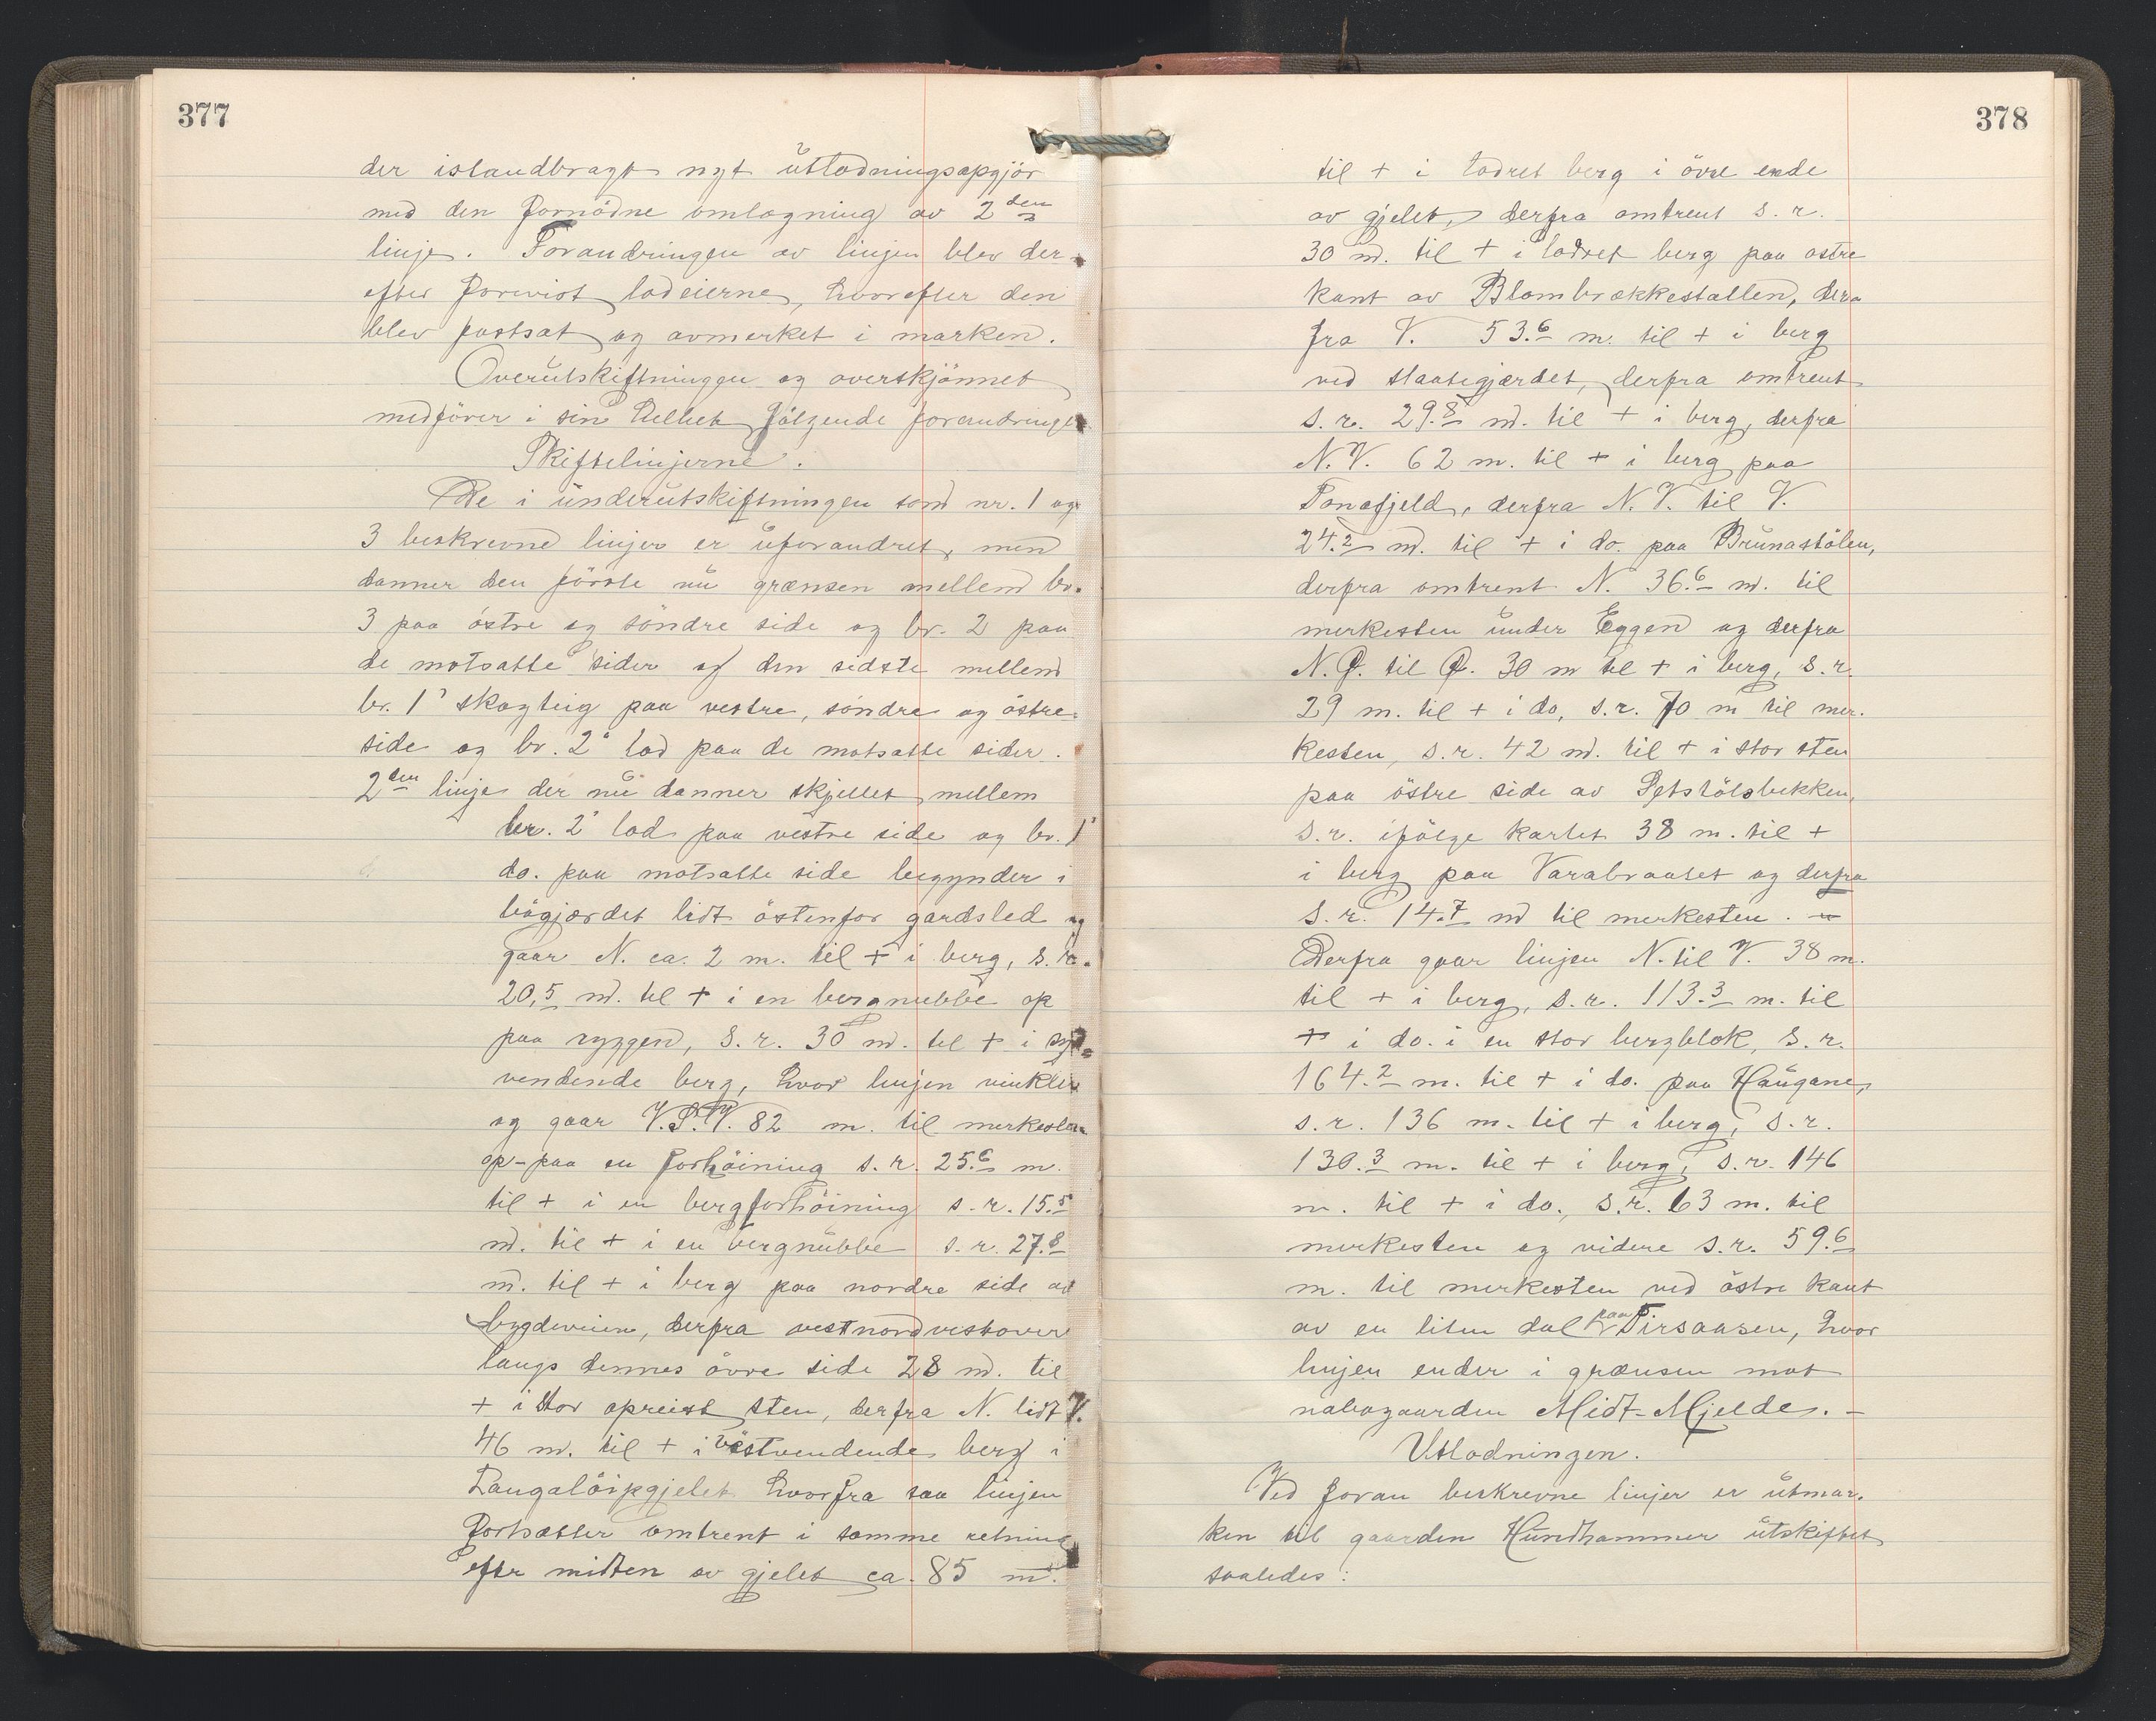 377
der istandbragt nyt utlodningsopgjör
med den fornödne omlægning av 2den
linje. Forandringen av linjen blev der-
efter forevist lodeierne, hvorefter den
blev fastsat og avmerket i marken.
Overutskiftningen og overskjönnet
medförer i sin helhet fölgende forandringer
Skiftelinjerne.
De i underutskiftningen som nr. 1 og
3 beskrevne linjer er uforandret, men
danner den förste nu grænsen mellem br.
3 paa östre og söndre side og br. 2 paa
de motsatte sider og den sidste mellem
br. 1' skogteig paa vestre, söndre og östre
side og br. 2' lod paa de motsatte sider.
2den linje der nu danner skjellet mellem
br. 2' lod paa vestre side og br. 1'
do. paa motsatte side begynder i
bögjærdet lidt östenfor gardsled og
gaar N. ca. 2 m. til + i berg, s. r.
20,5 m. til + i en bergnubbe op
paa ryggen, s. r. 30 m. til + i syd-
vendende berg, hvor linjen vinkler
og gaar V.S.V. 82 m. til merkesten
op-paa en forhöining s. r. 25.6 m.
til + i en bergforhöining s. r. 15.5
m. til + i en bergnubbe s. r. 27.8
m. til + i berg paa nordre side av
bygdeveien, derfra vestnordvestover
langs dennes övre side 28 m. til
+ i stor opreist sten, derfra N. lidt V.
46 m. til + i vestvendende berg i
Langalöipgjelet hvorfra saa linjen
fortsætter omtrent i samme retning
efter midten av gjelet ca. 85 m.
378
til + i lodret berg i övre ende
av gjelet, derfra omtrent s. r.
30 m. til + i lodret berg paa östre
kant av Blombrækkestallen, der-
fra V. 53.6 m. til + i berg
ved slaattegjærdet, derfra omtrent
s. r. 29.8 m. til + i berg, derfra
N. V. 62 m. til + i berg paa
Tonafjeld, derfra N. V. til V.
24.2 m. til + i do. paa Brunastölen,
derfra omtrent N. 36.6 m. til
merkesten under Eggen og derfra
N. Ø. til Ø. 30 m til + i berg, s. r.
29 m. til + i do, s. r. 70 m til mer-
kesten, s. r. 42 m. til + i stor sten
paa östre side av Sætstölsbekken,
s. r. ifölge kartet 38 m. til +
i berg paa Varabraatet og derfra
s. r. 14.7 m til merkesten. –
Derfra gaar linjen N. til V. 38 m.
til + i berg, s. r. 113.3 m. til
+ i do. i en stor bergblok, s. r.
164.2 m. til + i do. paa Haugane,
s. r. 136 m. til + i berg, s. r.
130.3 m. til + i berg, s. r. 146
m. til + i do., s. r. 63 m. til
merkesten og videre s. r. 59.6
m. til merkesten ved östre kant
av en liten dal paa Tirsaasen, hvor
linjen ender i grænsen mot
nabogaarden Midt-Mjelde. –
Utlodningen.
Ved foran beskrevne linjer er utmar-
ken til gaarden Hundhammer utskiftet
saaledes: